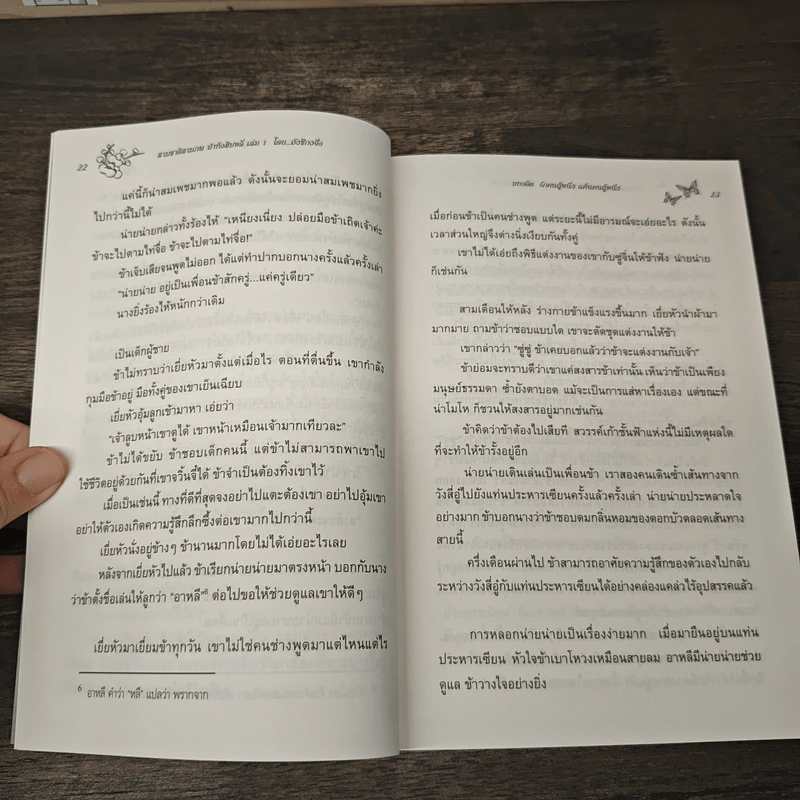 22
สามชาติสามภพ ป่าท้อสิบหลี่ เล่ม 1 โดย...ถังชีกงจื่อ
แค่นี้ก็น่าสมเพชมากพอแล้ว ดังนั้นจะยอมน่าสมเพชมากยิ่ง
ไปกว่านี้ไม่ได้
น่ายน่ายกล่าวทั้งร้องไห้ "เหนียงเนี่ยง ปล่อยมือข้าเถิดเจ้าค่ะ
ข้าจะไปตามไท่จื่อ ข้าจะไปตามไท่จื่อ!"
ข้าเจ็บเสียจนพูดไม่ออก ได้แต่ทำปากบอกนางครั้งแล้วครั้งเล่า
"น่ายน่าย อยู่เป็นเพื่อนข้าสักครู่...แค่ครู่เดียว"
นางยิ่งร้องไห้หนักกว่าเดิม
เป็นเด็กผู้ชาย
ข้าไม่ทราบว่าเยี่ยหัวมาตั้งแต่เมื่อไร ตอนที่ตื่นขึ้น เขากำลัง
กุมมือข้าอยู่ มือทั้งคู่ของเขาเย็นเฉียบ
เยี่ยหัวอุ้มลูกเข้ามาหา เอ่ยว่า
"เจ้าลูบหน้าเขาดูได้ เขาหน้าเหมือนเจ้ามากเทียวละ"
ข้าไม่ได้ขยับ ข้าชอบเด็กคนนี้ แต่ข้าไม่สามารถพาเขาไป
ใช้ชีวิตอยู่ด้วยกันที่เขาจวิ้นจี๋ได้ ข้าจำเป็นต้องทิ้งเขาไว้
เมื่อเป็นเช่นนี้ ทางที่ดีที่สุดจงอย่าไปแตะต้องเขา อย่าไปอุ้มเขา
อย่าให้ตัวเองเกิดความรู้สึกลึกซึ้งต่อเขามากไปกว่านี้
เยี่ยหัวนั่งอยู่ข้างๆ ข้านานมากโดยไม่ได้เอ่ยอะไรเลย
หลังจากเยี่ยหัวไปแล้ว ข้าเรียกน่ายน่ายมาตรงหน้า บอกกับนาง
ว่าข้าตั้งชื่อเล่นให้ลูกว่า "อาหลี"6 ต่อไปขอให้ช่วยดูแลเขาให้ดีๆ
เยี่ยหัวมาเยี่ยมข้าทุกวัน เขาไม่ใช่คนช่างพูดมาแต่ไหนแต่ไร
6 อาหลี คำว่า "หลี" แปลว่า พรากจาก
บทอดีต รักคนผู้หนึ่ง แค้นคนผู้หนึ่ง
23
เมื่อก่อนข้าเป็นคนช่างพูด แต่ระยะนี้ไม่มีอารมณ์จะเอ่ยอะไร ดังนั้น
เวลาส่วนใหญ่จึงต่างนิ่งเงียบกันทั้งคู่
เขาไม่ได้เอ่ยถึงพิธีแต่งงานของเขากับซู่จิ่นให้ข้าฟัง น่ายน่าย
ก็เช่นกัน
สามเดือนให้หลัง ร่างกายข้าแข็งแรงขึ้นมาก เยี่ยหัวนำผ้ามา
มากมาย ถามข้าว่าชอบแบบใด เขาจะตัดชุดแต่งงานให้ข้า
เขากล่าวว่า "ซู่ซู่ ข้าเคยบอกแล้วว่าข้าจะแต่งงานกับเจ้า"
ข้าย่อมจะทราบดีว่าเขาแค่สงสารข้าเท่านั้น เห็นว่าข้าเป็นเพียง
มนุษย์ธรรมดา ซ้ำยังตาบอด แม้จะเป็นการแส่หาเรื่องเอง แต่ขณะที่
น่าโมโห ก็ชวนให้สงสารอยู่มากเช่นกัน
ข้าคิดว่าข้าต้องไปเสียที สวรรค์เก้าชั้นฟ้าแห่งนี้ไม่มีเหตุผลใด
ที่จะทำให้ข้ารั้งอยู่อีก
น่ายน่ายเดินเล่นเป็นเพื่อนข้า เราสองคนเดินซ้ำเส้นทางจาก
วังสี่อู๋ไปยังแท่นประหารเซียนครั้งแล้วครั้งเล่า น่ายน่ายประหลาดใจ
อย่างมาก ข้าบอกนางว่าข้าชอบดมกลิ่นหอมของดอกบัวตลอดเส้นทาง
สายนี้
ครึ่งเดือนผ่านไป ข้าสามารถอาศัยความรู้สึกของตัวเองไปกลับ
ระหว่างวังสี่อู๋กับแท่นประหารเซียนได้อย่างคล่องแคล่วไร้อุปสรรคแล้ว
การหลอกน่ายน่ายเป็นเรื่องง่ายมาก เมื่อมายืนอยู่บนแท่น
ประหารเซียน หัวใจข้าเบาโหวงเหมือนสายลม อาหลีมีน่ายน่ายช่วย
ดูแล ข้าวางใจอย่างยิ่ง